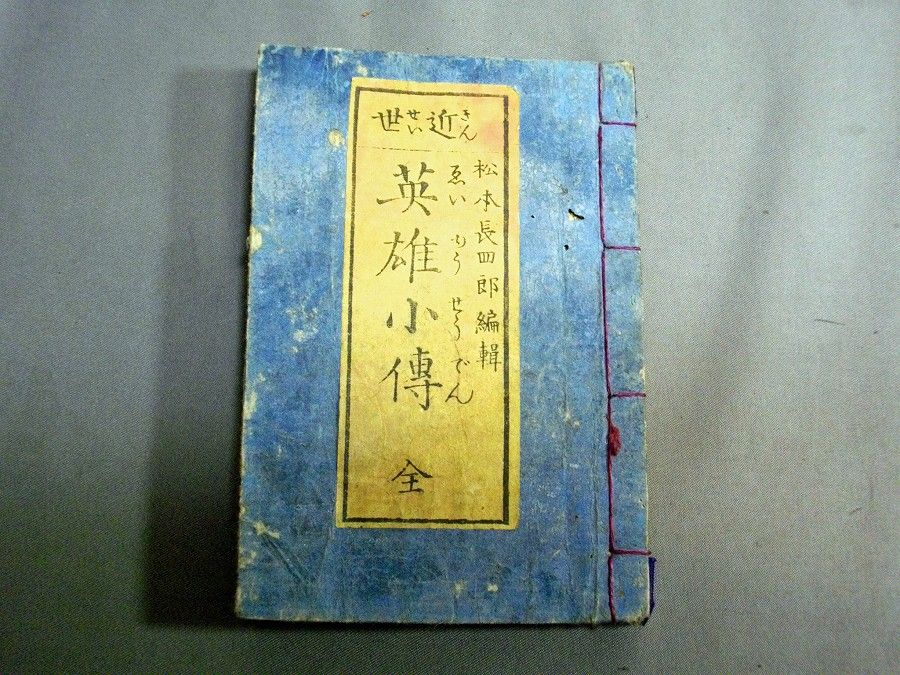 近世
きんせい
松本長四郎編輯
英雄小傳
ゑいゆうせうでん
全